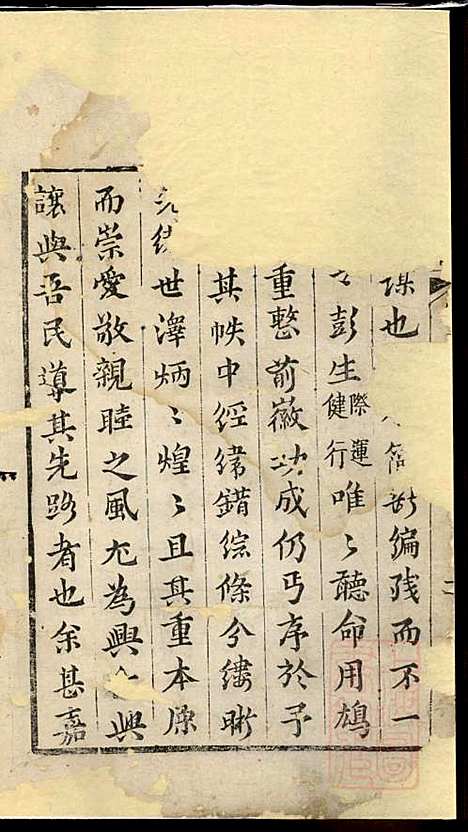 也簡斷編殘而不一
彭生際運健行唯〻聽命用鳩
重整前徽功成仍丐序於予
其帙中經緯錯綜條分縷晰
世澤炳〻煌〻且其重本源
而崇愛敬親睦之風尤為興興
讓與吾民導其先路者也余甚嘉